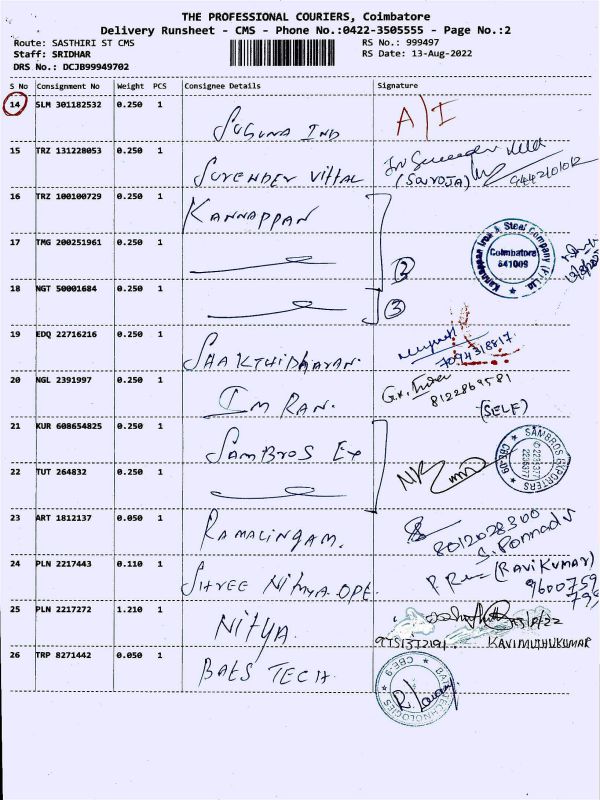 THE PROFESSIONAL COURIERS, Coimbatore
Delivery Runsheet - CMS - Phone No.:0422-3505555 - Page No.:2
Route: SASTHIRI ST CMS RS No.: 999497
Staff: SRIDHAR RS Date: 13-Aug-2022
DRS No.: DCJB99949702
S No Consignment No Weight PCS Consignee Details Signature
14 SLM 301182532 0.250 1
SUGUNA IND A/I
15 TRZ 131228053 0.250 1
SURENDER VITTAL (SAROJA) 9442101012
16 TRZ 100100729 0.250 1
KANNAPPAN
17 TMG 200251961 0.250 1
Kannappan Iron & Steel Company (P) Ltd.
Coimbatore
641009
2
18 NGT 50001684 0.250 1
3
19 EDQ 22716216 0.250 1
SHAKTHIDHARAN. 7094318817.
20 NGL 2391997 0.250 1
IMRAN. 8122869581
(SELF)
21 KUR 608654825 0.250 1
SAMBROS EX
SAMBROS EXPORTERS
CBE-09
22 TUT 264832 0.250 1
23 ART 1812137 0.050 1
RAMALINGAM. 8012028300
S. Ponnadu
24 PLN 2217443 0.110 1
SHREE NITHYA OPT. (RAVI KUMAR)
9600759
795
25 PLN 2217272 1.210 1
NITYA. 9751372191 KAVIMUTHUKUMAR
26 TRP 8271442 0.050 1
BATS TECH.
BATS TECHNOLOGIES
CBE-9